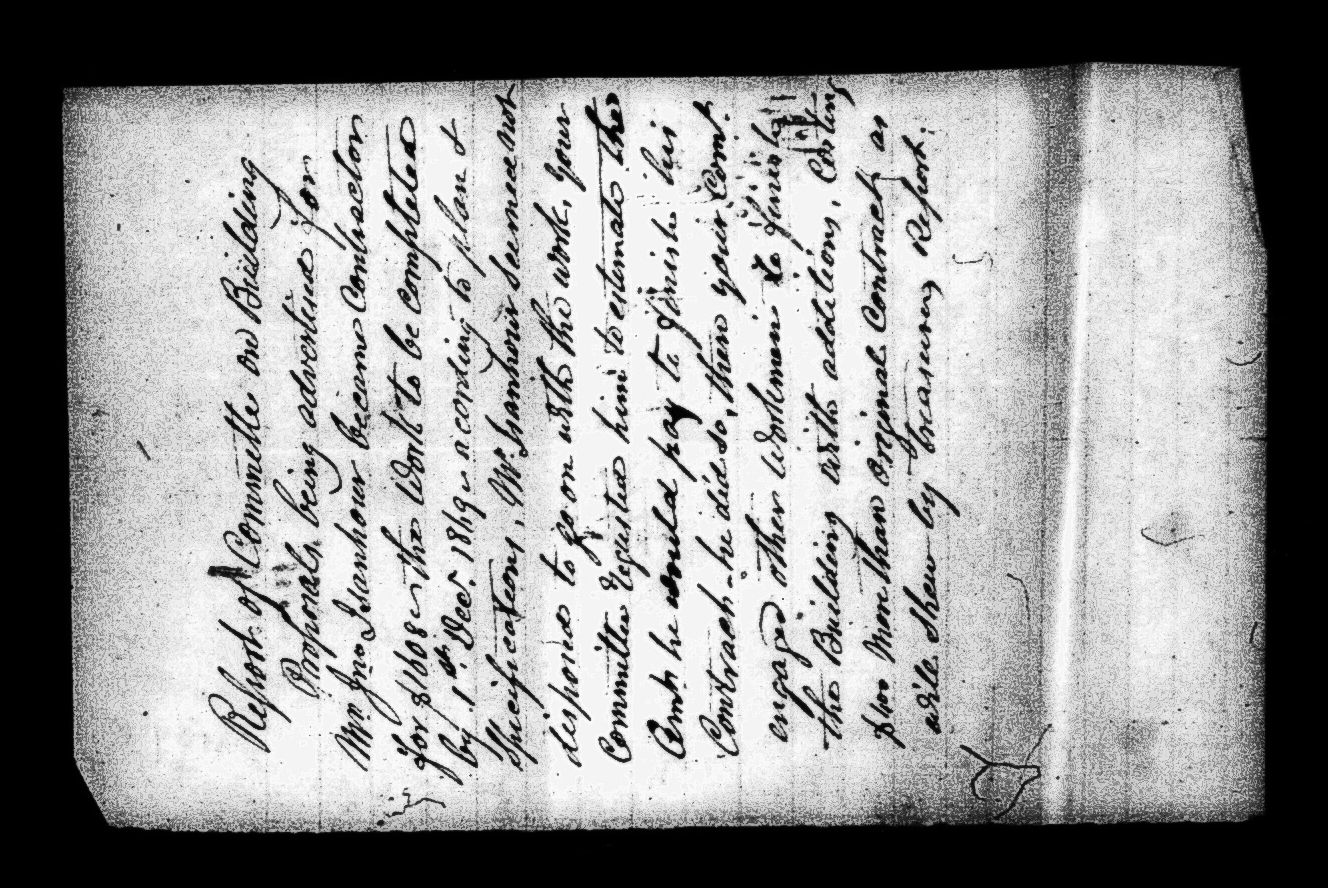 Report of Committe on Building
Proposals being advertised for
Mr. Jno Isanhour became Contractor
for $1608 is the Work to be completed
by 1st Dect. 1849 is according to plan &
Specifications, Mr. Isanhour Seemed not
disposed to go on with the work, your
Committee Requested him to estimate the
Amt he would pay to finish his
Contract - he did so, then your Comt.
engaged other Workmen to finish
the Building with additions, Costing
$ more than Original Contract as
will Shew by Treasurers Report.